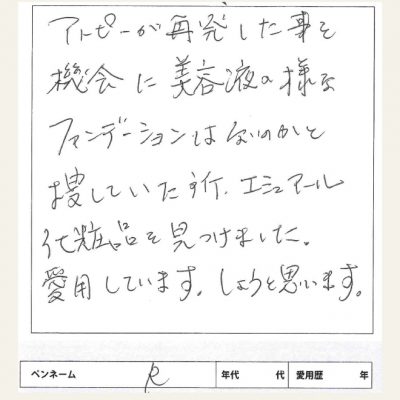 アトピーが再発した事を
機会に美容液の様な
ファンデーションはないのかと
捜していた所、エシュアール
化粧品を見つけました。
愛用しています。しようと思います。
ペンネーム R 年代 代 愛用歴 年